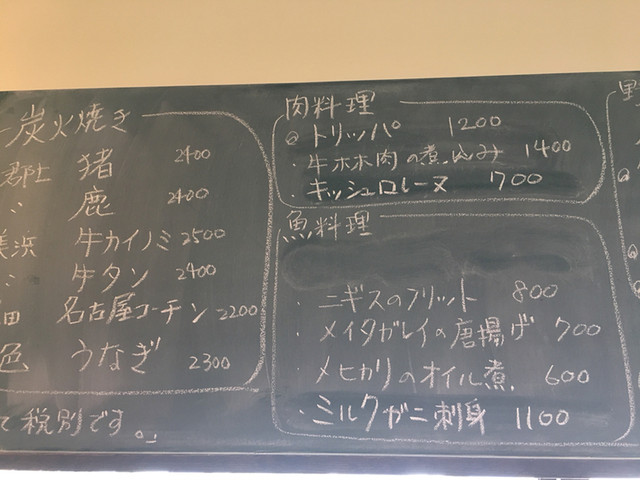 炭火焼き
郡上 猪 2400
〃 鹿 2400
美浜 牛カイノミ 2500
〃 牛タン 2400
田 名古屋コーチン 2200
色 うなぎ 2300
て税別です。
肉料理
◎トリッパ 1200
・牛ホホ肉の煮込み 1400
・キッシュロレーヌ 700
魚料理
・ニギスのフリット 800
・メイタガレイの唐揚げ 700
・メヒカリのオイル煮 600
・ミルクガニ刺身 1100
野